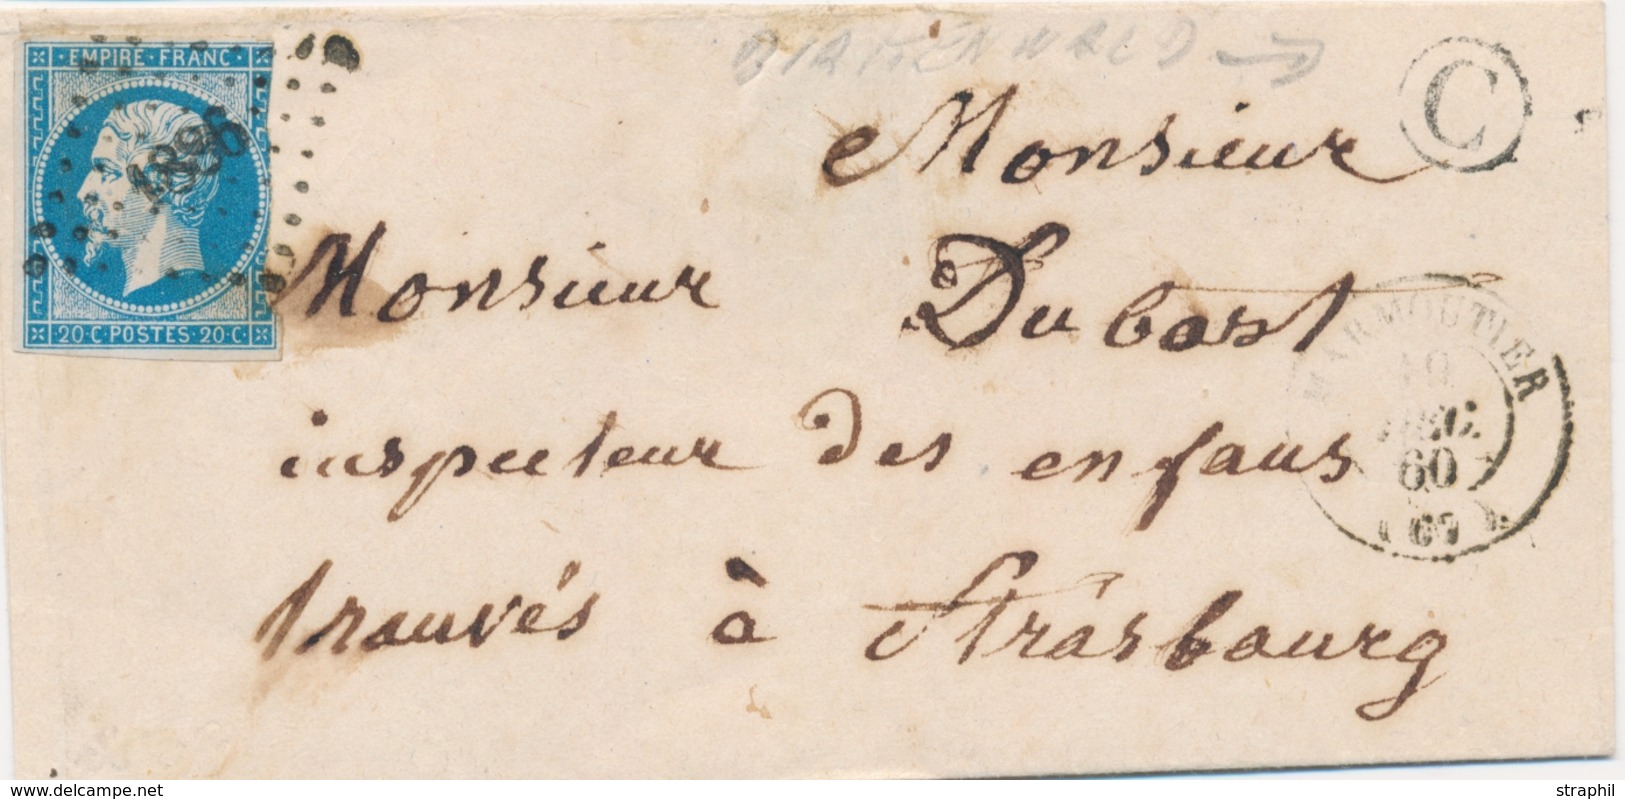 BIRKENWALD →
EMPIRE · FRANC ·
1896
· 20 · C · POSTES · 20 · C ·
C
Monsieur
Monsieur Dubost
inspecteur des enfans
trouvés à Strasbourg
MARMOUTIER
DEC.
60
(67)
straphil